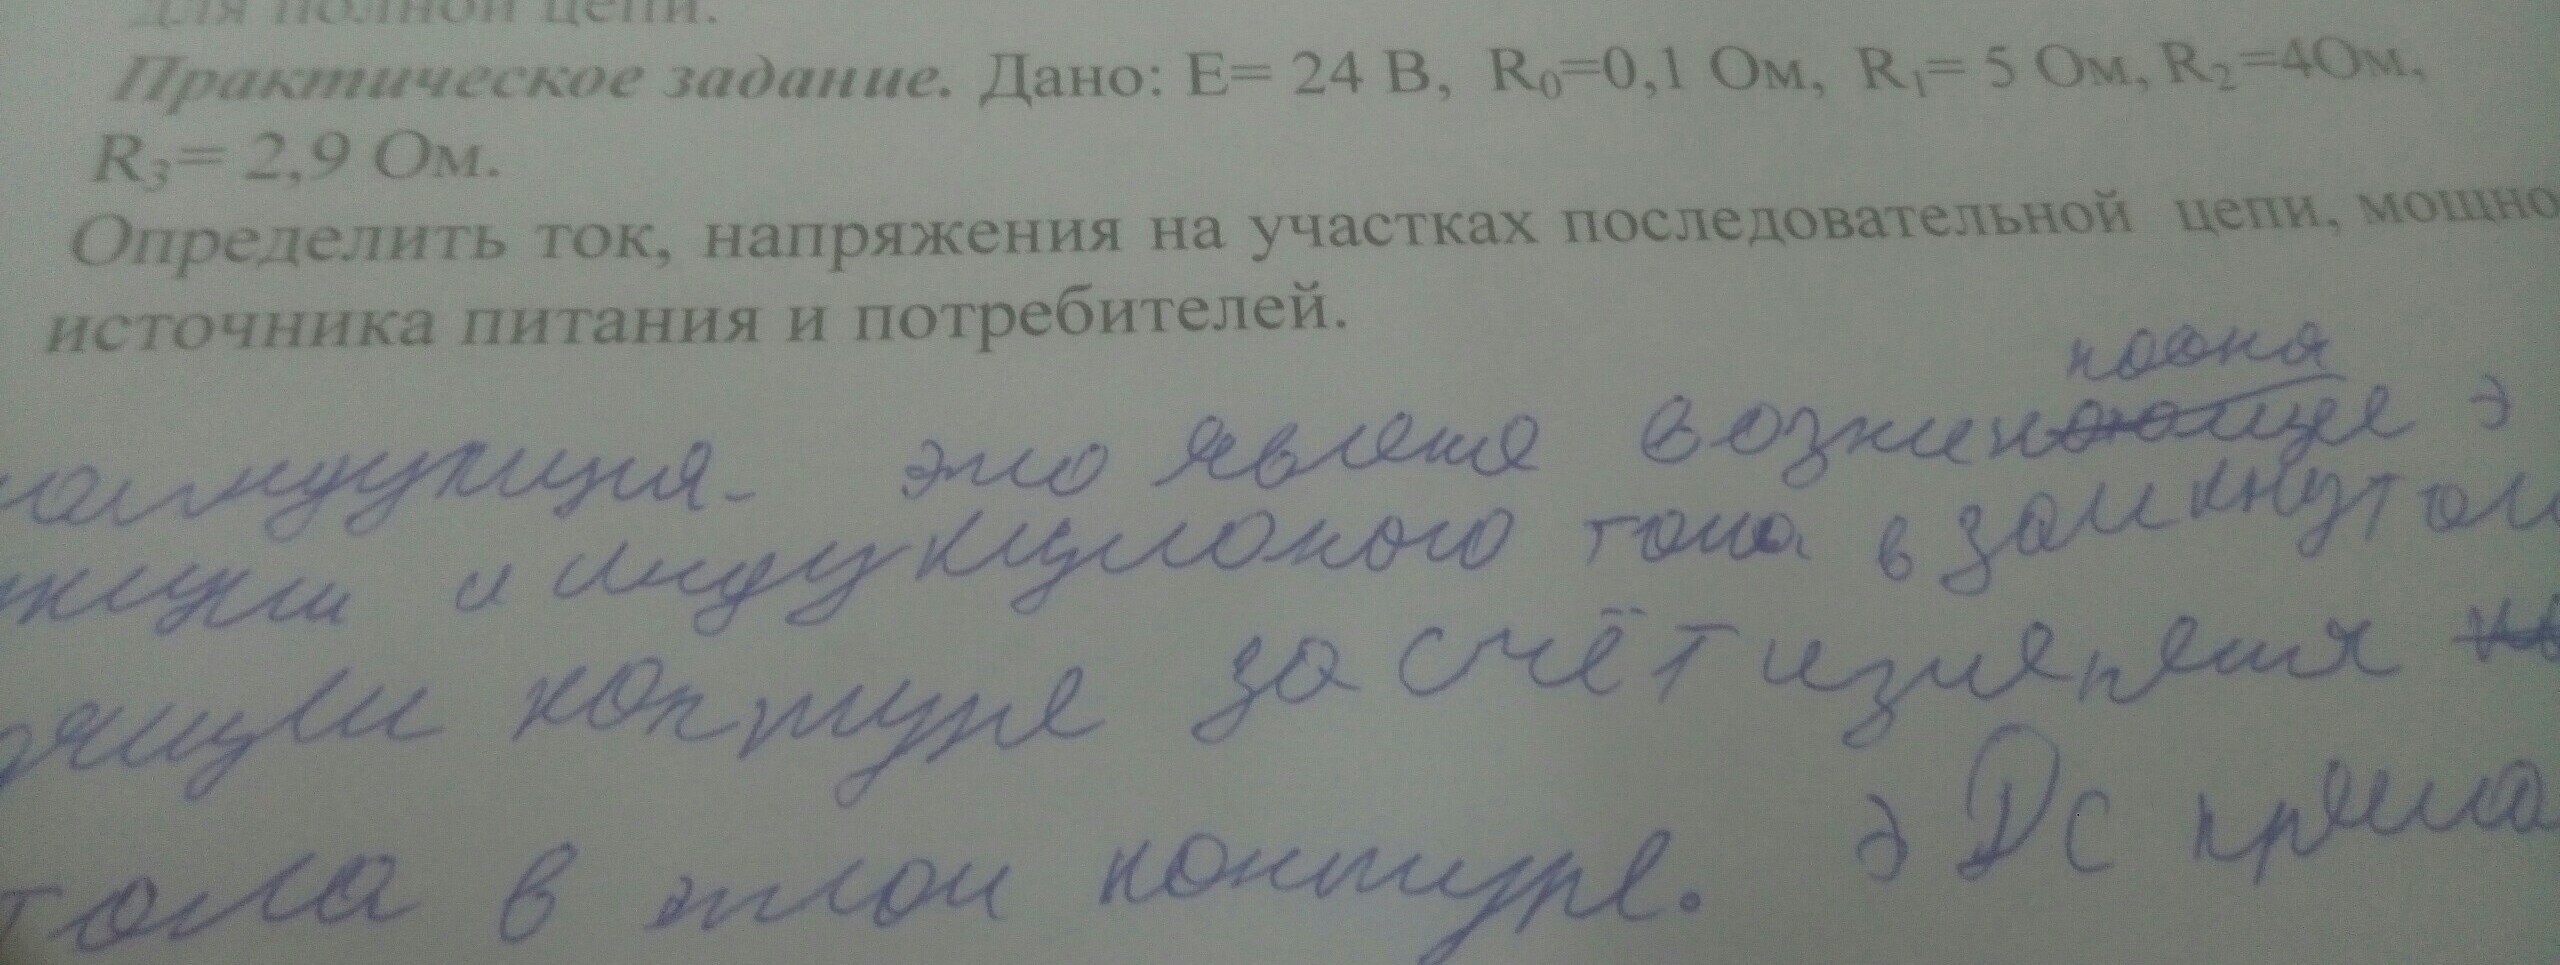 для полной цепи.
Практическое задание. Дано: Е= 24 В, R₀=0,1 Ом, R₁= 5 Ом, R₂=4Ом,
R₃= 2,9 Ом.
Определить ток, напряжения на участках последовательной цепи, мощно
источника питания и потребителей.
индукция - это явлене возникно э
и индукционого тока в замкнутом
контуре за счёт изменения
тока в этом контуре. э DC пряма